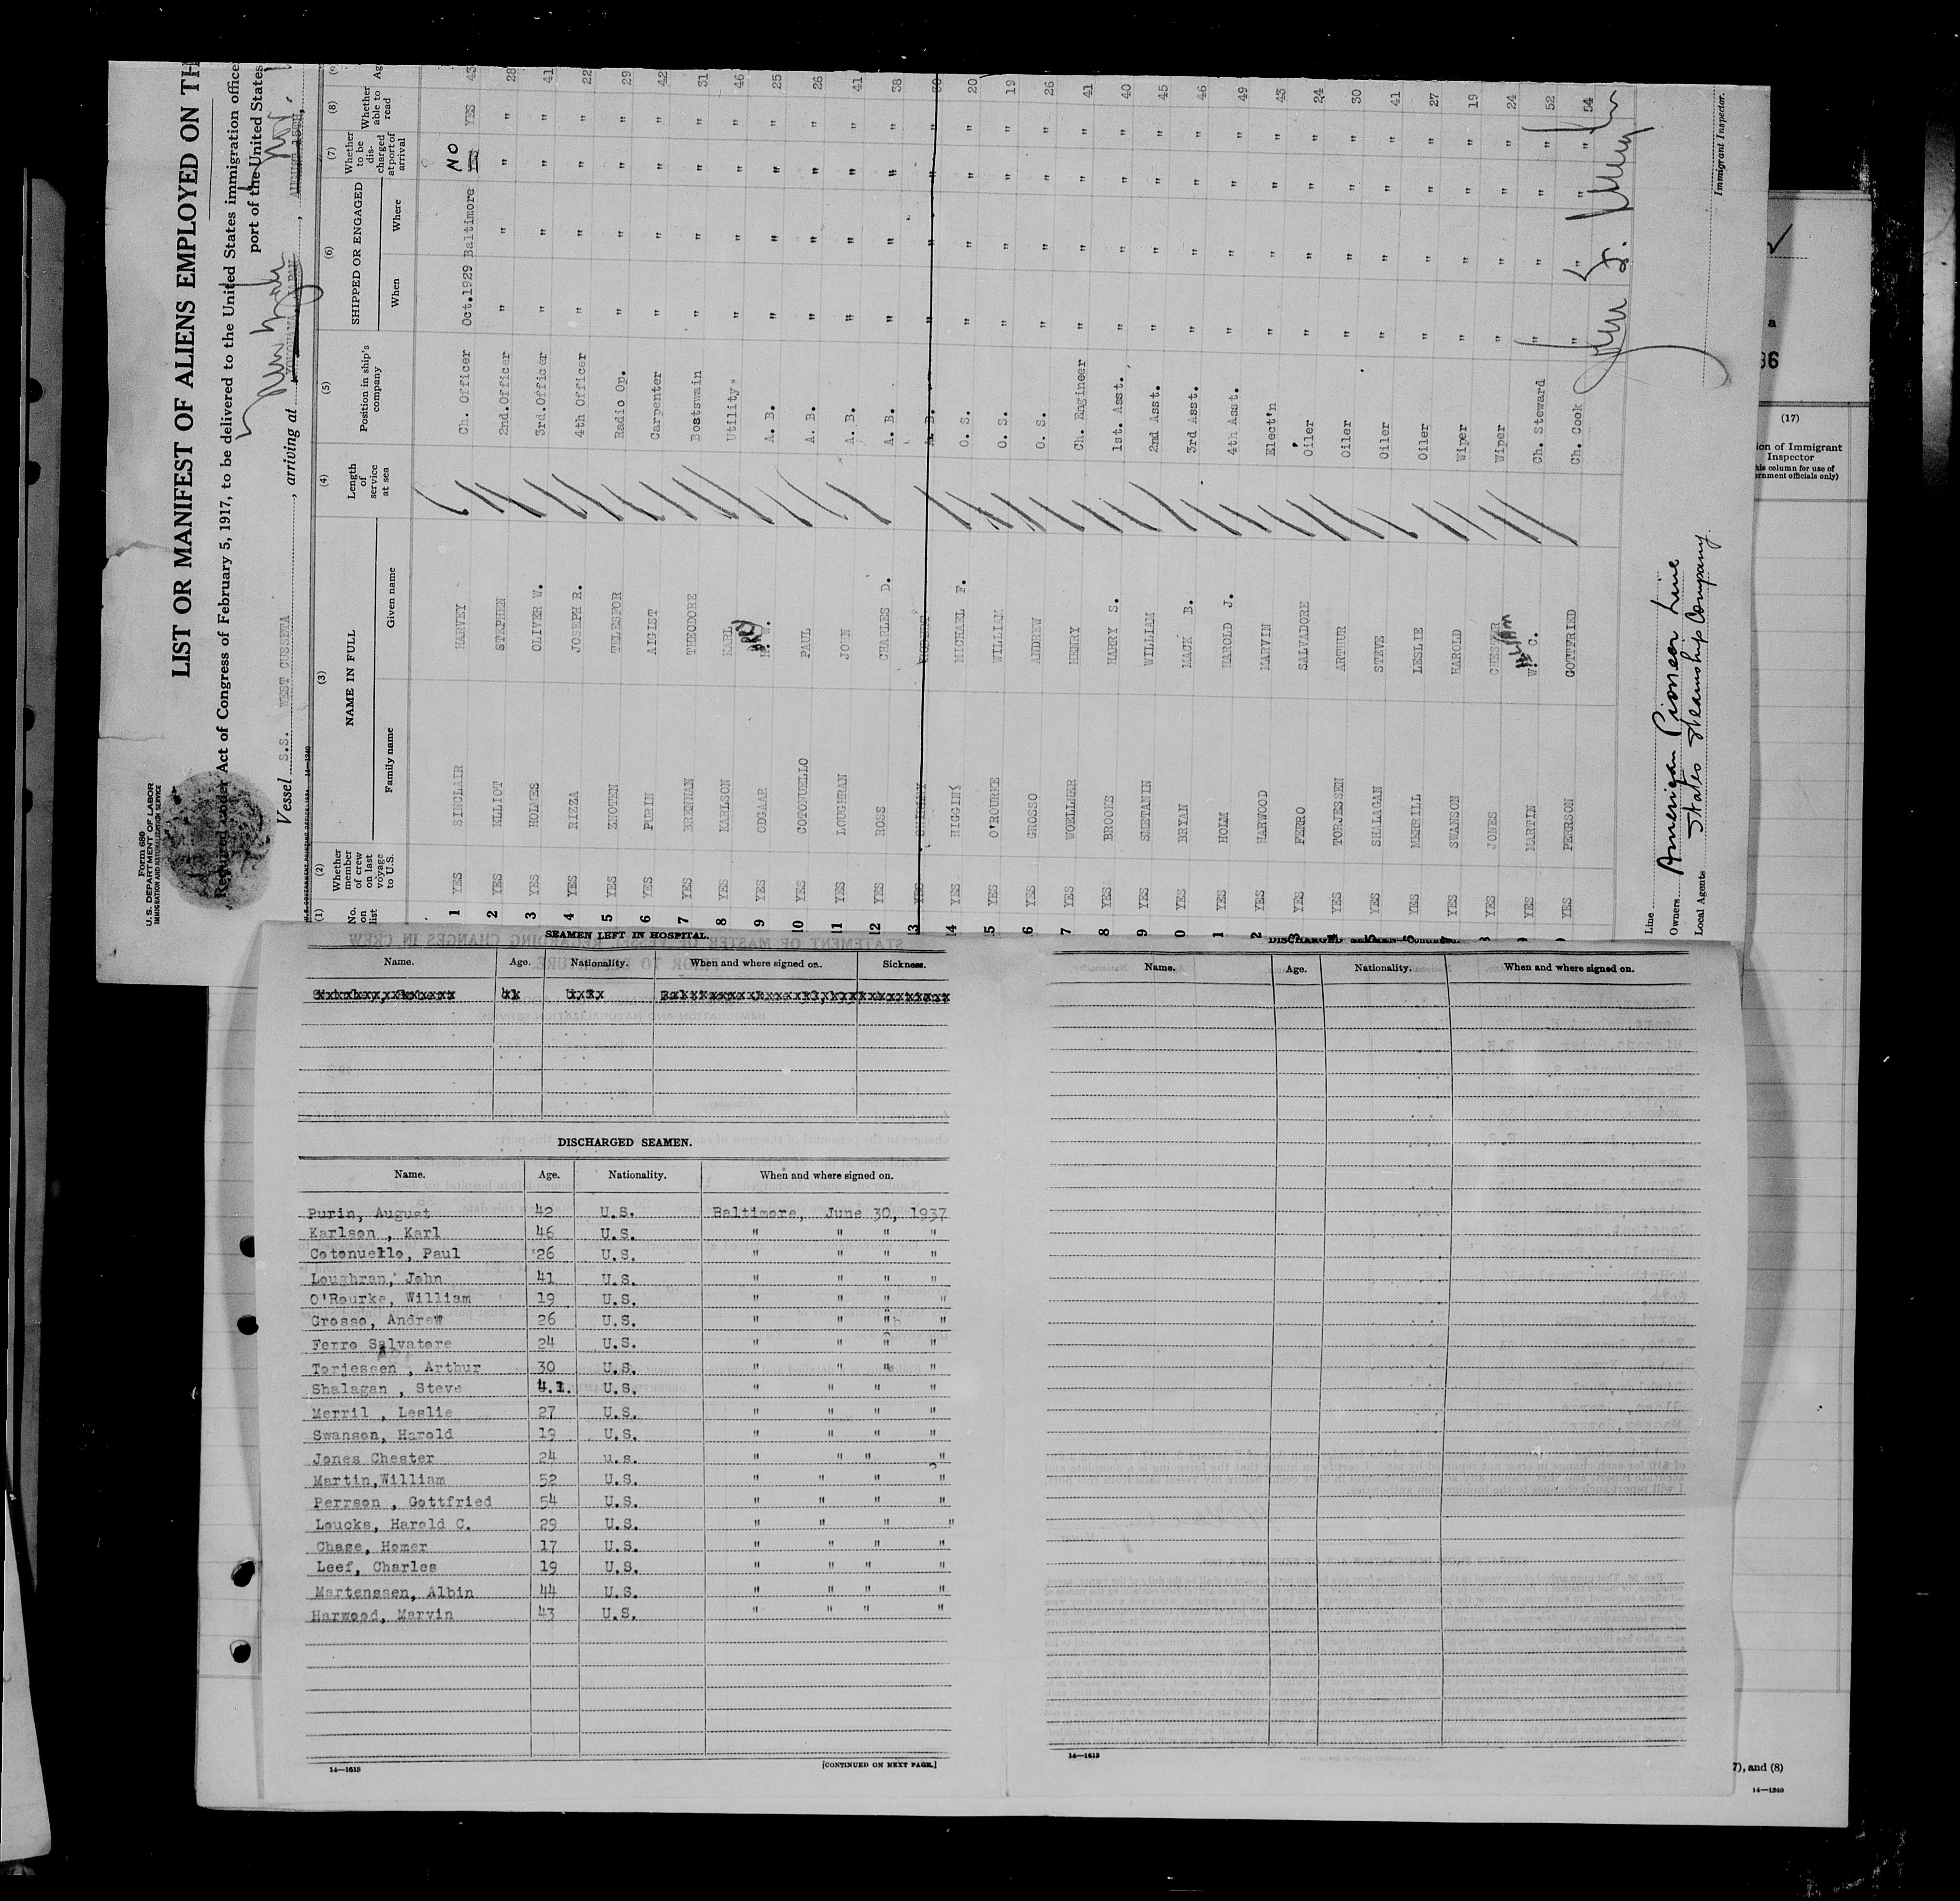 Form 680
U. S. DEPARTMENT OF LABOR
IMMIGRATION AND NATURALIZATION SERVICE
LIST OR MANIFEST OF ALIENS EMPLOYED ON TH
Required under Act of Congress of February 5, 1917, to be delivered to the United States immigration officer
port of the United States
Vessel S.S. WEST CUSSETA, arriving at New York YOKOHAMA, JAPAN,
(1) (2) (3) (4) (5) (6) (7) (8) (9)
No. on list
Whether member of crew on last voyage to U.S.
NAME IN FULL
Family name Given name
Length of service at sea
Position in ship's company
SHIPPED OR ENGAGED
When Where
Whether to be discharged at port of arrival
Whether able to read
Ag
1 YES SINCLAIR HARVEY Ch. Officer Oct.1929 Baltimore NO YES YES 43
2 YES ELLIOT STEPHEN 2nd.Officer " " " " 28
3 YES HOLMES OLIVER W. 3rd.Officer " " " " 41
4 YES RIZZA JOSEPH R. 4th Officer " " " " 22
5 YES ZNOTEN TELESFOR Radio Op. " " " " 29
6 YES PURIN AIGIST Carpenter " " " " 42
7 YES BRENNAN THEODORE Boatswain " " " " 31
8 YES KARLSON KARL Utility " " " " 46
9 YES ODGAAR W. A. B. " " " " 25
10 YES COTONUELLO PAUL A. B. " " " " 26
11 YES LOUGHRAN JOHN A. B. " " " " 41
12 YES ROSS CHARLES D. A. B. " " " " 38
3 YES A. B. " " " "
4 YES HIGGINS MICHAEL F. O. S. " " " " 20
5 YES O'ROURKE WILLIAM O. S. " " " " 19
6 YES GROSSO ANDREW O. S. " " " " 26
7 YES WOELLNER HENRY Ch. Engineer " " " " 41
8 YES BROOKS HARRY S. 1st. Asst. " " " " 40
9 YES SMETANIN WILLIAM 2nd Asst. " " " " 45
0 YES BRYAN MACK B. 3rd Asst. " " " " 46
1 YES HOLM HAROLD J. 4th Asst. " " " " 49
2 YES HARWOOD MARVIN Elect'n " " " " 43
3 YES FERRO SALVADORE Oiler " " " " 24
YES TORJESSEN ARTHUR Oiler " " " " 30
YES SHALAGAN STEVE Oiler " " " " 41
YES MERRILL LESLIE Oiler " " " " 27
YES SWANSON HAROLD Wiper " " " " 19
YES JONES CHESTER Wiper " " " " 24
YES MARTIN William W. C. Ch. Steward " " " " 52
YES PERRSON GOTTFRIED Ch. Cook " " " " 54
Line American Pioneer Line
Owners
Local Agents States Steamship Company
Immigrant Inspector.
a
36
(17)
ion of Immigrant
Inspector
his column for use of
ernment officials only)
7), and (8)
14—1240
SEAMEN LEFT IN HOSPITAL.
Name. Age. Nationality. When and where signed on. Sickness.
DISCHARGED SEAMEN.
Name. Age. Nationality. When and where signed on.
Purin, August 42 U.S. Baltimore, June 30, 1937
Karlson , Karl 46 U.S. " " " "
Cotonuello, Paul 26 U.S. " " " "
Loughran, John 41 U.S. " " " "
O'Rourke, William 19 U.S. " " " "
Grosso, Andrew 26 U.S. " " " "
Ferro Salvatore 24 U.S. " " " "
Torjessen , Arthur 30 U.S. " " " "
Shalagan , Steve 41. U.S. " " " "
Merril , Leslie 27 U.S. " " " "
Swanson, Harold 19 U.S. " " " "
Jones Chester 24 u.s. " " " "
Martin,William 52 U.S. " " " "
Perrson , Gottfried 54 U.S. " " " "
Loucks, Harold C. 29 U.S. " " " "
Chase, Homer 17 U.S. " " " "
Leef, Charles 19 U.S. " " " "
Martenssen, Albin 44 U.S. " " " "
Harwood, Marvin 43 U.S. " " " "
14—1613 [CONTINUED ON NEXT PAGE.]
DISCHARGED SEAMEN—Continued.
Name. Age. Nationality. When and where signed on.
14—1613